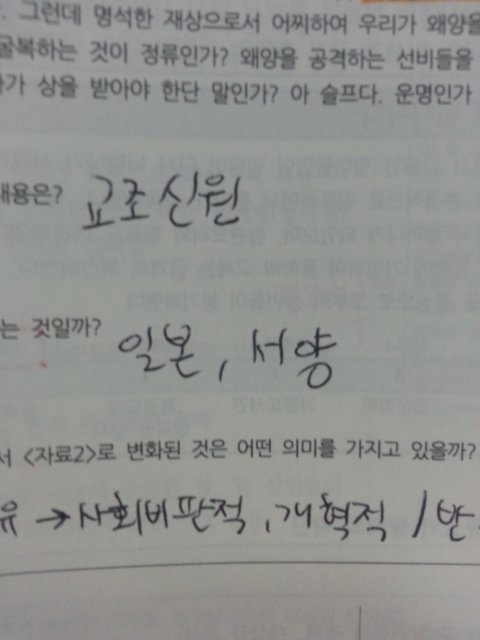 . 그런데 명석한 재상으로서 어찌하여 우리가 왜양을
굴복하는 것이 정류인가? 왜양을 공격하는 선비들을
가 상을 받아야 한단 말인가? 아 슬프다. 운명인가
내용은? 교조신원
는 것일까? 일본, 서양
서 <자료2>로 변화된 것은 어떤 의미를 가지고 있을까?
유 → 사회비판적, 개혁적 / 반